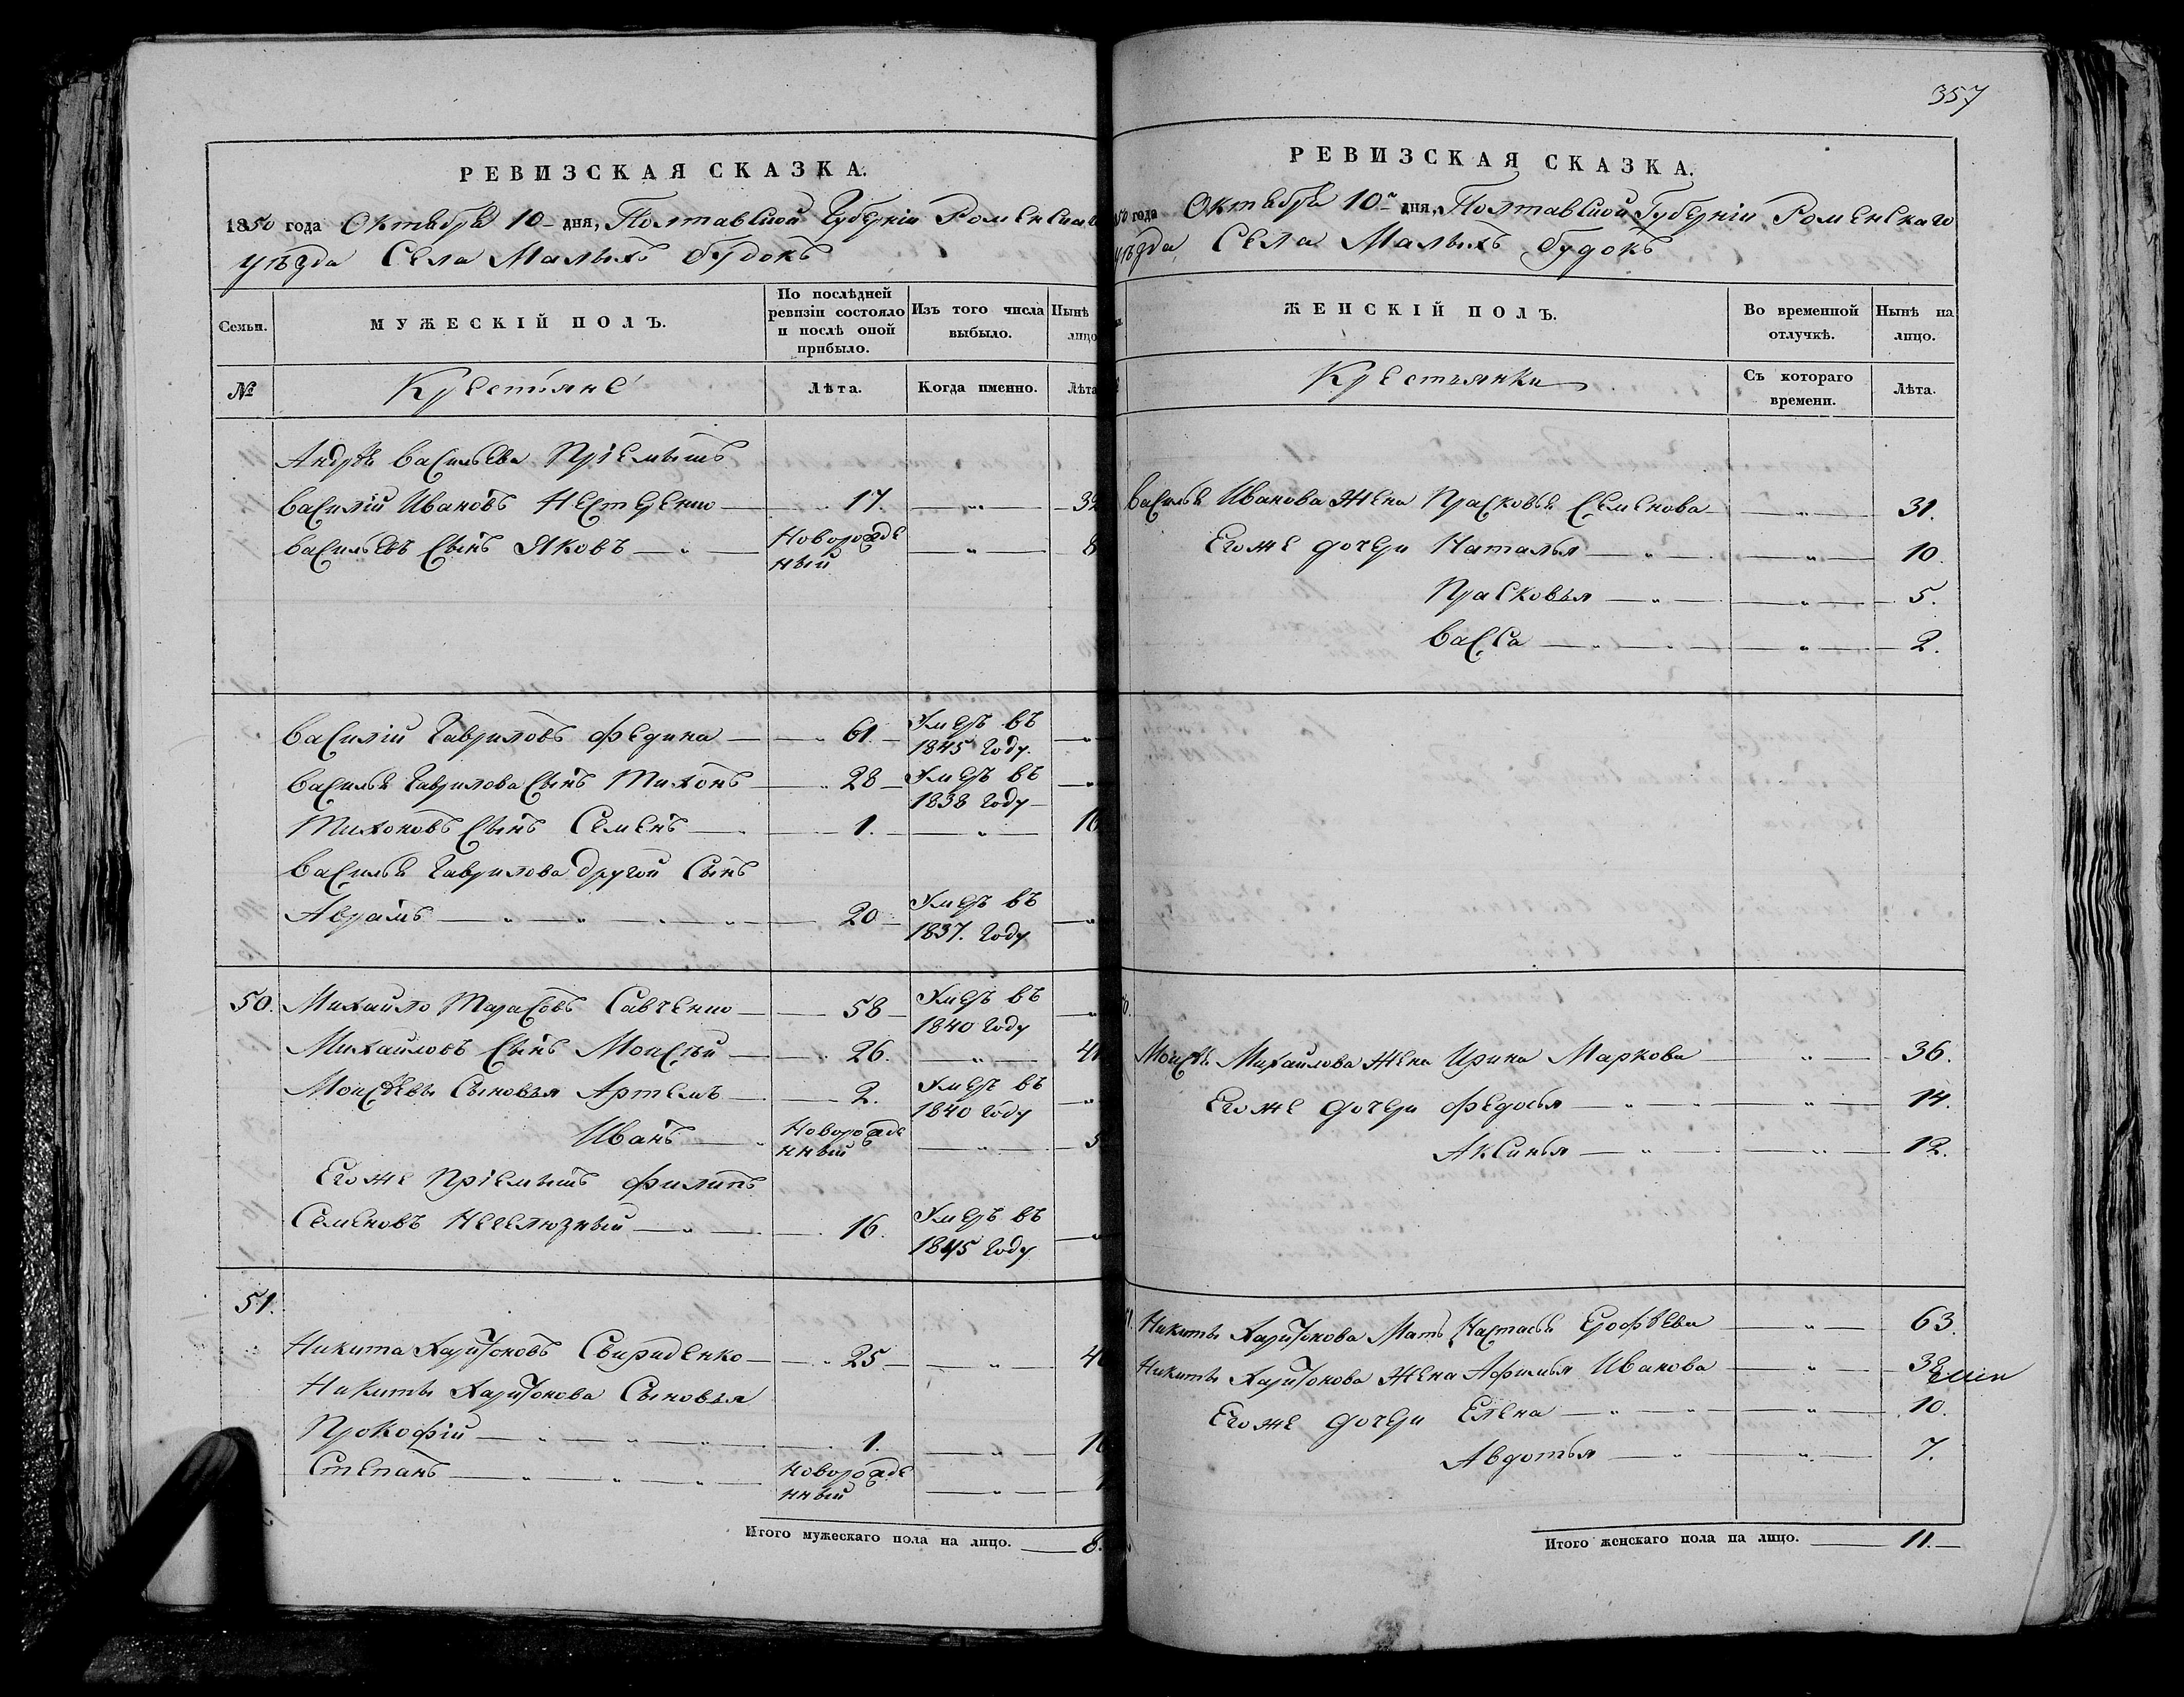 РЕВИЗСКАЯ СКАЗКА.
1850 года Октября 10 дня, Полтавской Губерніи Роменскаго
уѣзда Села Малыхъ Будокъ
Семьи.
МУЖЕСКІЙ ПОЛЪ.
По послѣдней ревизіи состояло и послѣ оной прибыло.
Изъ того числа выбыло.
Нынѣ
лицо
№
Крестьяне
Лѣта.
Когда именно.
Лѣта
Андрея Васильева Пріемышъ
Василій Ивановъ Нестеренко 17. 32
Васильевъ Сынъ Яковъ Новорожденный 8
Василій Гавриловъ Федина 61. Умеръ въ 1845 Году.
Василья Гаврилова Сынъ Тихонъ 28 Умеръ въ 1838 Году
Тихоновъ Сынъ Семенъ 1. 16
Василья Гаврилова другой Сынъ
Аврамъ 20 Умеръ въ 1837. Году
50. Михайло Тарасовъ Савченко 58 Умеръ въ 1840 Году
Михайловъ Сынъ Моисѣй 26. 41
Моисѣевы Сыновья Артемъ 2. Умеръ въ 1840 Году
Иванъ Новорожденный 5
Его же Пріемышъ Филипъ
Семеновъ Нечелюзный 16. Умеръ въ 1845 Году
51.
Никита Харитоновъ Свириденко 25 40
Никиты Харитонова Сыновья
Прокофій 1. 16
Степанъ Новорожденный 1
Итого мужескаго пола на лицо. 8.
357
РЕВИЗСКАЯ СКАЗКА.
50 года Октября 10 дня, Полтавской Губерніи, Роменскаго
уѣзда, Села Малыхъ Будокъ
ЖЕНСКІЙ ПОЛЪ.
Во временной отлучкѣ.
Нынѣ на лицо.
Крестьянки
Съ котораго времени.
Лѣта.
Василья Иванова Жена Прасковья Семенова 31.
Его же дочери Наталья 10.
Прасковья 5.
Васса 2.
Моисѣя Михайлова Жена Ирина Маркова 36.
Его же дочери Федосья 14.
Аксинья 12.
Никиты Харитонова Мать Настасья Ерофѣева 63.
Никиты Харитонова Жена Афимья Иванова 38
Его же дочери Елена 10.
Авдотья 7.
Итого женскаго пола на лицо. 11.